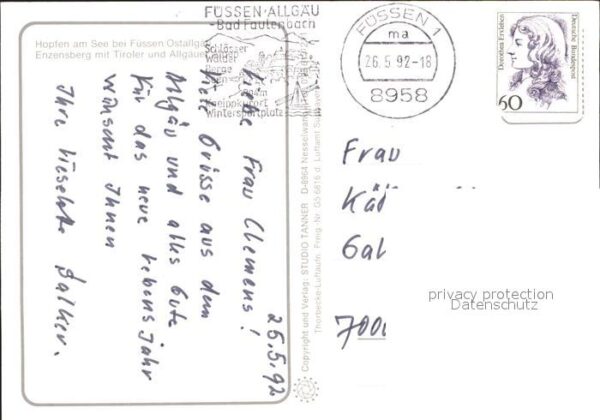 FÜSSEN·ALLGÄU
-Bad Faulenbach
Schlösser
Wälder
Berge
Kneippkurort
Wintersportplatz
FÜSSEN 1
ma
26.5.92-18
8958
Dorothea Erxleben
Deutsche Bundespost
60
Hopfen am See bei Füssen Ostallgäu
Enzensberg mit Tiroler und Allgäuer
25.5.92
Liebe Frau Clemens!
Viele Grüsse aus dem
Allgäu und alles Gute
für das neue Lebensjahr
wünscht Ihnen
Ihre Lieselotte
Copyright und Verlag: STUDIO TANNER D-8964 Nesselwang
Thorbecke-Luftaufn. Freig.-Nr. G5 6816 d. Luftamt Südbayern
Frau
Kä
Gal
700
privacy protection
Datenschutz